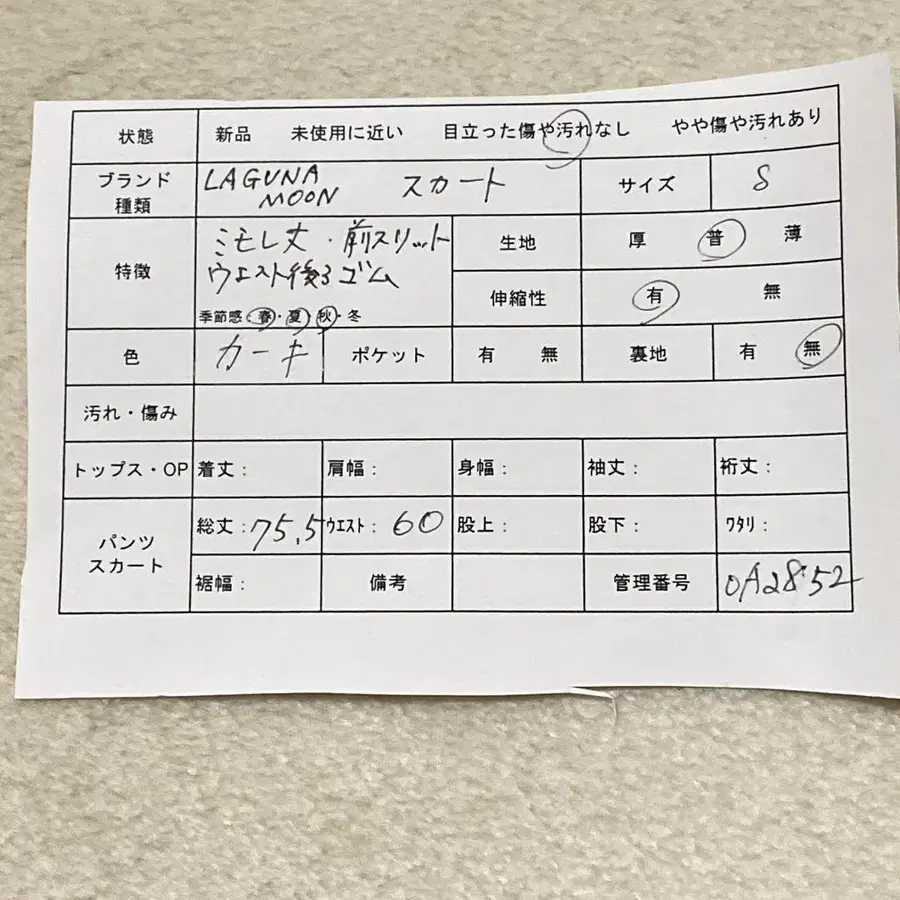 状態 新品 未使用に近い 目立った傷や汚れなし やや傷や汚れあり
ブランド種類 LAGUNA MOON スカート サイズ S
特徴 ミモレ丈・前スリット 生地 厚 普 薄
ウエスト後ろゴム 伸縮性 有 無
季節感・春・夏・秋・冬
色 カーキ ポケット 有 無 裏地 有 無
汚れ・傷み
トップス・OP 着丈: 肩幅: 身幅: 袖丈: 裄丈:
パンツ スカート 総丈:75.5 ウエスト:60 股上: 股下: ワタリ:
裾幅: 備考 管理番号 0A2852